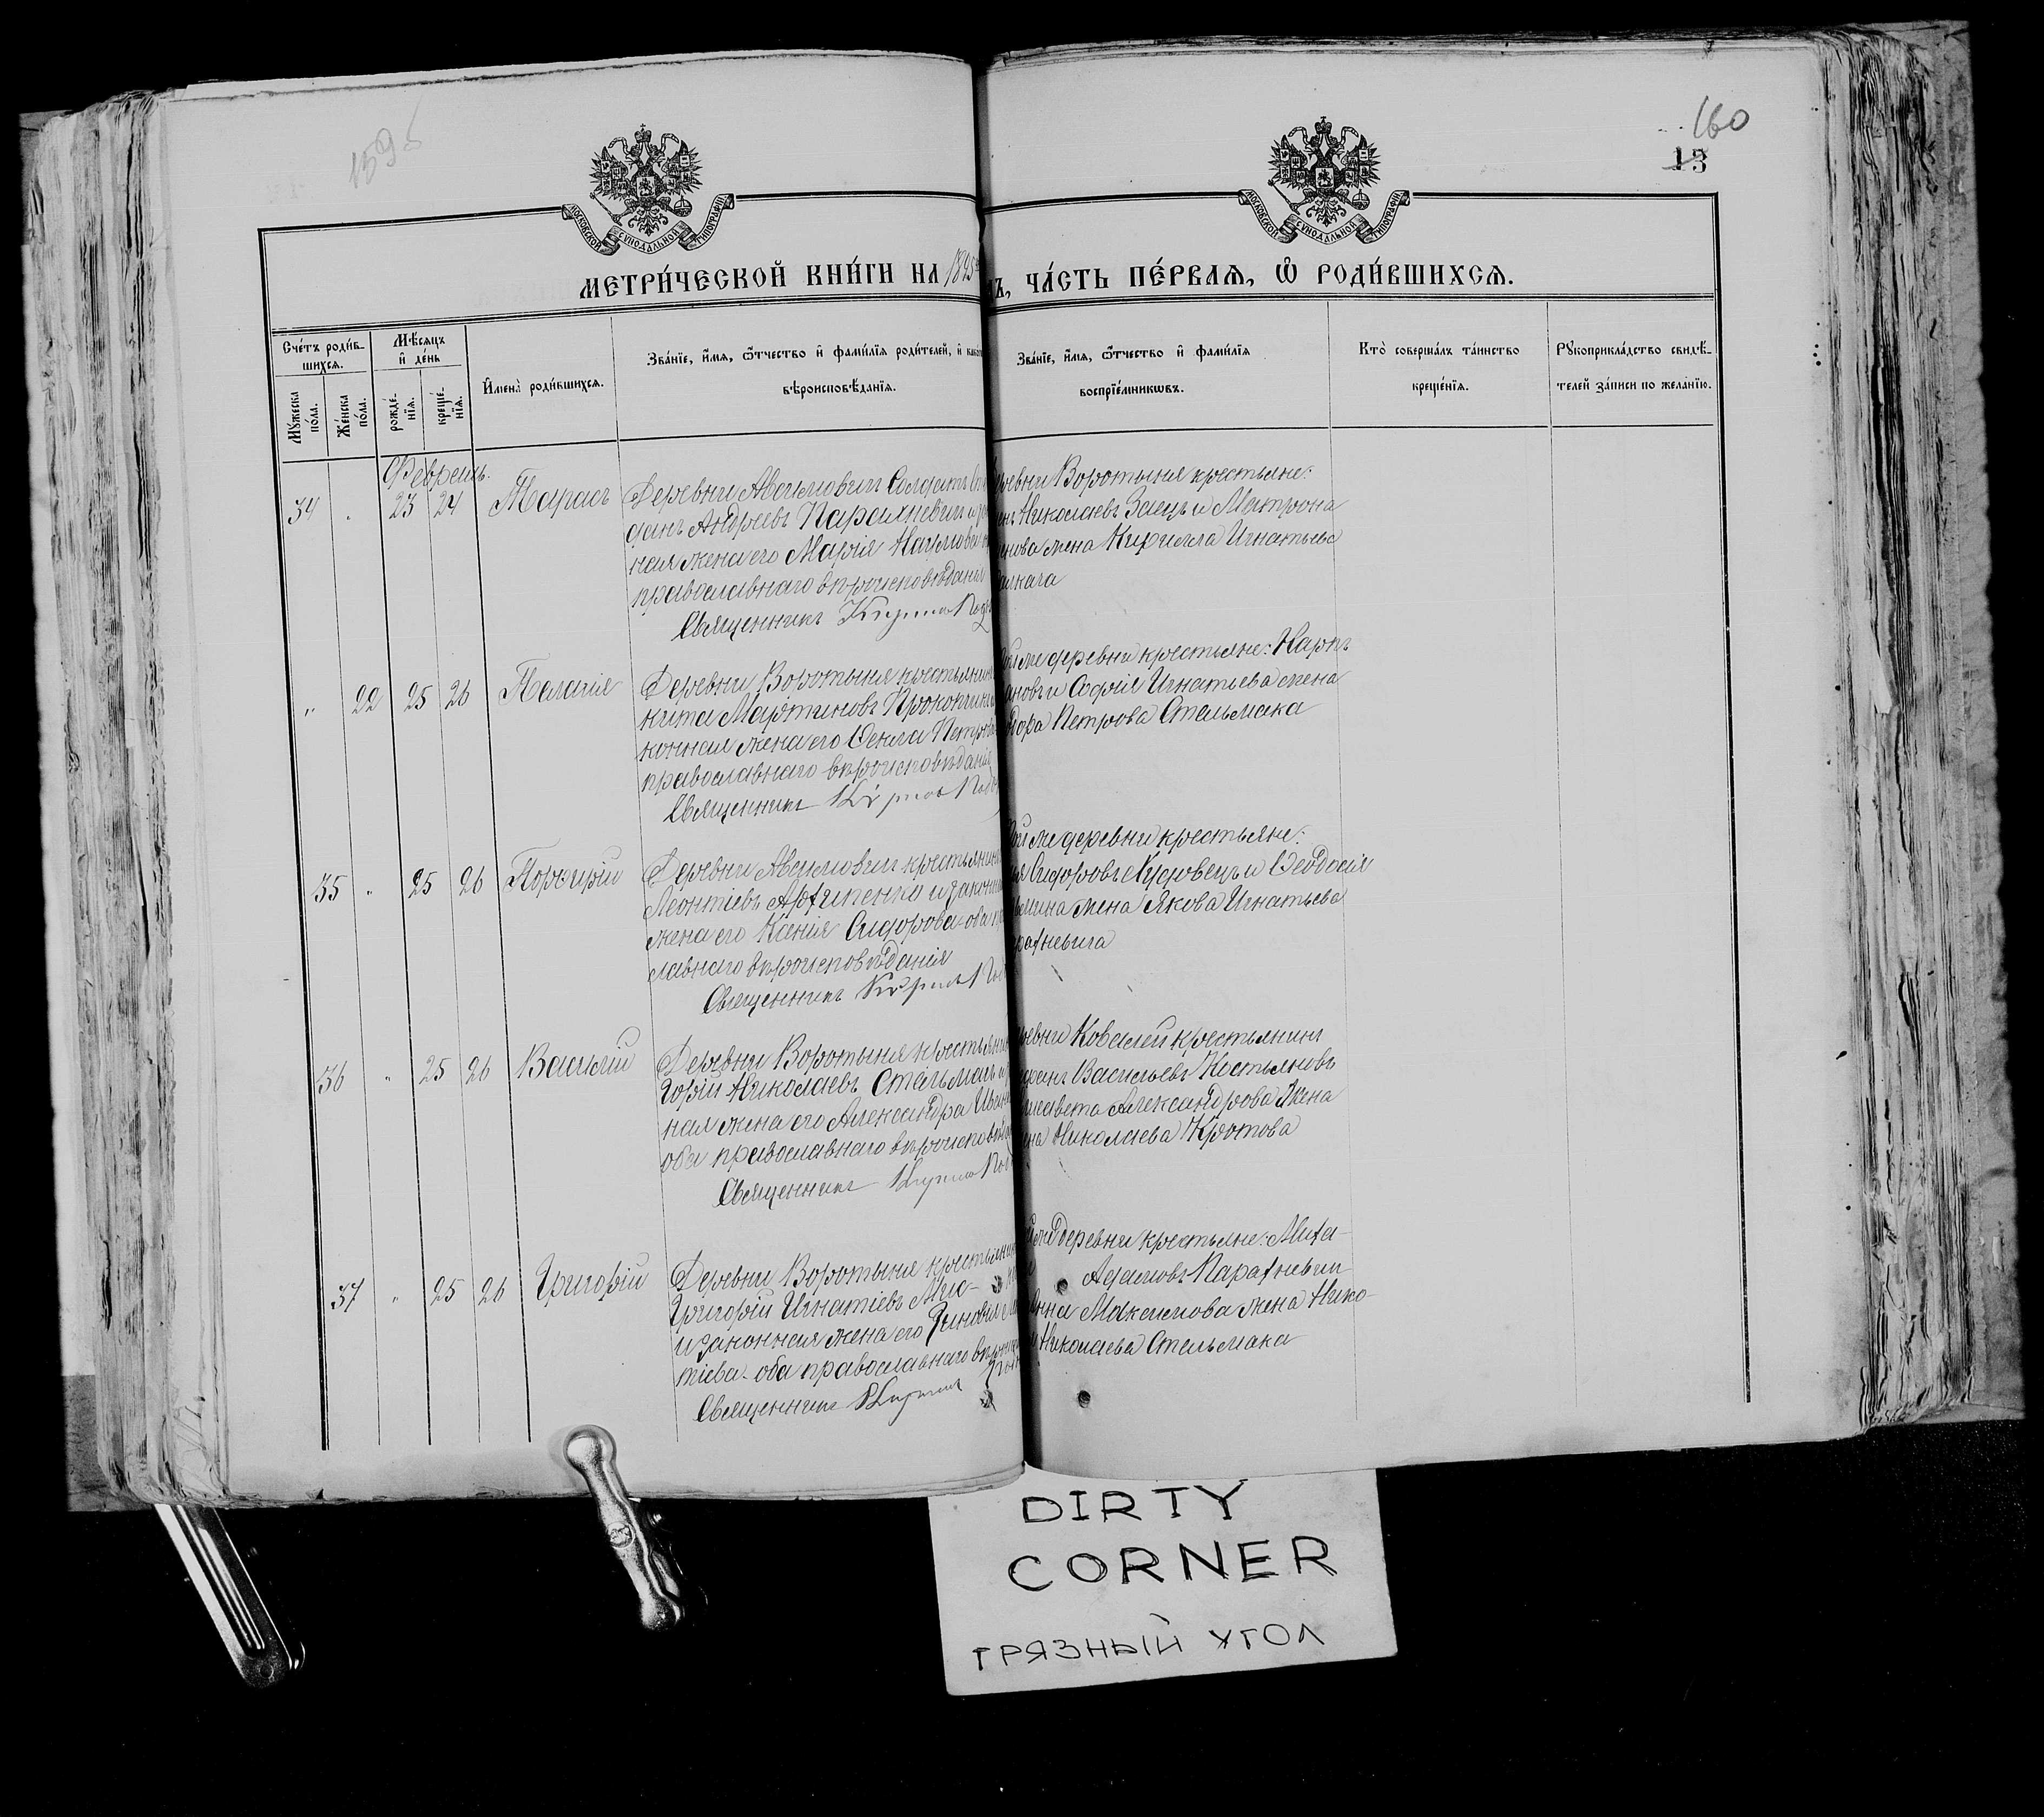 159
160
13
МОСКОВСКОЙ СѴНОДАЛЬНОЙ ТИПОГРАФІИ
МОСКОВСКОЙ СѴНОДАЛЬНОЙ ТИПОГРАФІИ
МЕТРИ́ЧЕСКОЙ КНИ́ГИ НА 1895
, ЧА́СТЬ ПЕ́РВАЯ, Ѿ РОДИ́ВШИХСЯ.
Сче́тъ роди́в-
шихся.
Мѣ́сяцъ
и҆ де́нь
Му́жеска
по́ла.
Же́нска
по́ла.
рожде́-
нїя.
креще́-
нїя.
И҆мена̀ роди́вшихся.
Зва́нїе, и҆́мя, ѻ҆́тчество и҆ фами́лїя роди́телей, и҆
вѣроисповѣ́данїя.
Зва́нїе, и҆́мя, ѻ҆́тчество и҆ фами́лїя
воспрїе́мникѡвъ.
Кто̀ соверша́лъ та́инство
креще́нїя.
Рꙋкоприкла́дство свидѣ́-
телей за́писи по жела́нїю.
Февраль
34 " 23 24 Тарасъ
Деревни Авсимовичъ Солдатъ
данъ Андреевъ Парахневичъ и
ная жена его Марія Наумова
православнаго вѣроисповѣданія
Священникъ
Воротыня крестьяне:
Николаевъ Заецъ и Матрона
жена Кирилла Игнатьева
" 22 25 26 Пелагія
Деревни Воротыня крестьянинъ
кита Мартиновъ Прокопчикъ
конная жена его Ѳекла Петрова
православнаго вѣроисповѣданія
Священникъ
же деревни крестьяне: Карпъ
Софія Игнатьева жена
Петрова Стельмака
35 " 25 26 Порфирій
Деревни Авсимовичъ крестьянинъ
Леонтіевъ Архипенко и законная
жена его Ксенія Сидорова оба
славнаго вѣроисповѣданія
Священникъ
же деревни крестьяне:
Сидоровъ и Ѳеодосія
жена Якова Игнатьева
36 " 25 26 Василій
Деревни Воротыня крестьянинъ
горій Николаевъ Стельмахъ и
ная жена его Александра
оба православнаго вѣроисповѣд
Священникъ
Ковалей крестьянинъ
Васильевъ Костьяновъ
Александрова жена
Николаева Кротова
37 " 25 26 Григорій
Деревни Воротыня крестьянинъ
Григорій Игнатіевъ
и законная жена его Зиновія
тіева оба православнаго
Священникъ
деревни крестьяне: Миха-
Адамовъ Парахневичъ
Анна Максимова жена Нико-
Николаева Стельмака
DIRTY
CORNER
ГРЯЗНЫЙ УГОЛ